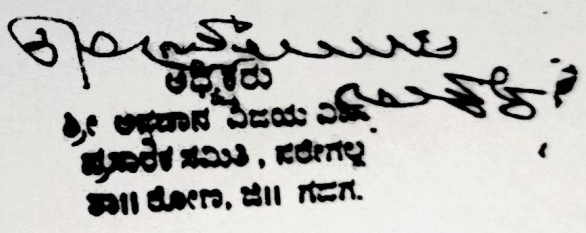 ಅಧ್ಯಕ್ಷರು
ಶ್ರೀ ಅನ್ನದಾನ ವಿಜಯ ವಿದ್ಯಾ
ಪ್ರಸಾರಕ ಸಮಿತಿ, ನರೇಗಲ್ಲ
ತಾ|| ರೋಣ, ಜಿ|| ಗದಗ.